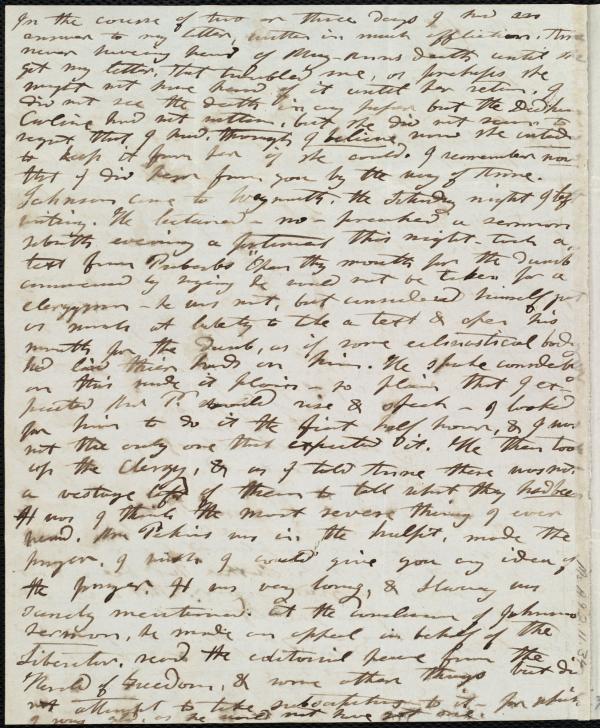 In the course of two or three days I had an
answer to my letter, written in much affliction. Anne
never having heard of Mary-Anns death until she
got my letter, that troubled me, or perhaps she
might not have heard of it until her return. I
did not see the death in any paper but the Dedham
Caroline had not written, but she did not seem to
regret that I had, though I believe now she intended
to keep it from her if she could. I remember now
that I did hear from you by the way of Anne.
Johnson came to Weymouth, the Saturday night I left
writing. He lectured - no - preached a sermon
sabbath evening a fortnight this night - took a
text from Proverbs "Open thy mouth for the dumb
commenced by saying he would not be taken for a
clergyman - he was not, but considered himself just
as much at liberty to take a text & open his
mouth for the dumb, as if some ecclesiastical body
had laid their hands on him. He spoke considerable
on this made it plain - so plain that I ex-
pected Mr P. would rise & speak - I looked
for him to do it the first half hour, & I was
not the only one that expected it. He then took
up the Clergy, & as I told Anne there was not
a vestage left of them to tell what they had been
It was I think the most severe thing I ever
heard. Mr Perkins was in the pulpit, made the
prayer. I wish I could give you any idea of
the prayer. It was very long, & Slavery was
surely mentioned. At the conclusion of Johnsons
sermon, he made an appeal in behalf of the
Liberator, read the editorial from the
Herald of Freedom, & some other things but did
not attempt to take subscribers to it - for which
I was, as he would not have got one.